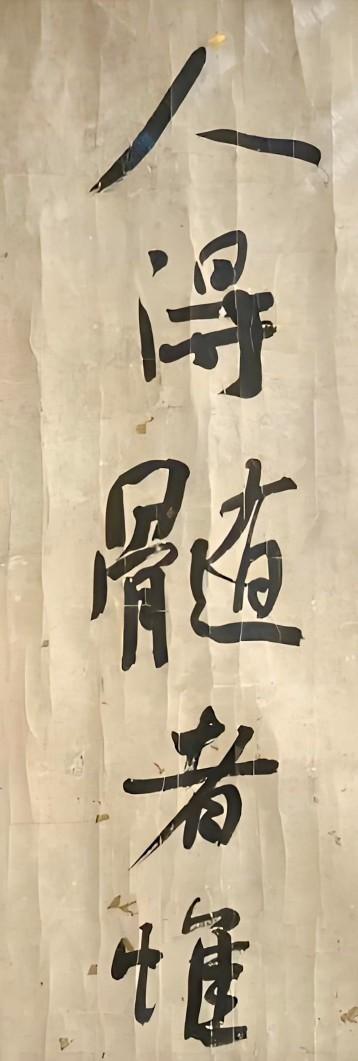 人得髓者惟